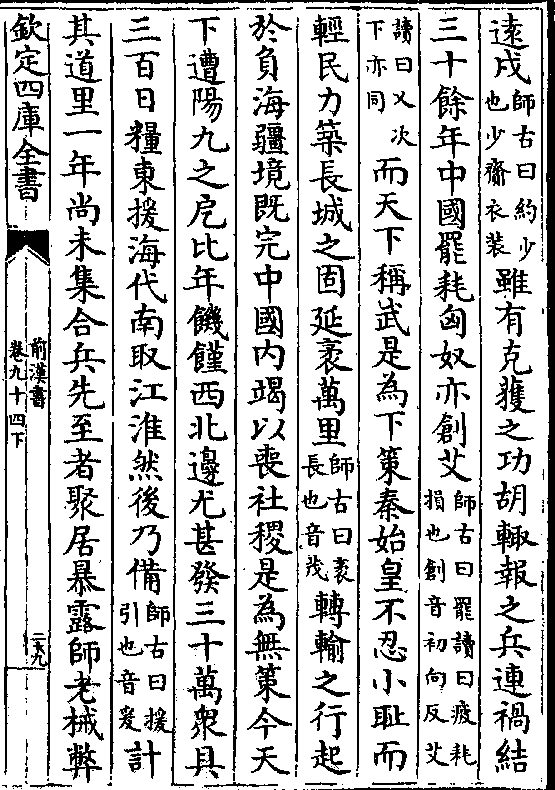 遠戍師古曰約少也少齎衣裝雖有克獲之功胡輙報之兵連禍結
三十餘年中國罷耗匈奴亦創艾師古曰罷讀曰疲耗損也創音初向反艾
讀曰乂次下亦同而天下稱武是為下策秦始皇不忍小耻而
輕民力築長城之固延袤萬里師古曰袤長也音茂轉輸之行起
於負海疆境既完中國内竭以喪社稷是為無策今天
下遭陽九之戹比年饑饉西北邊尤甚發三十萬衆具
三百日糧東援海代南取江淮然後乃備師古曰援引也音爰計
其道里一年尚未集合兵先至者聚居暴露師老械弊
欽定四庫全書
前漢書
卷九十四下